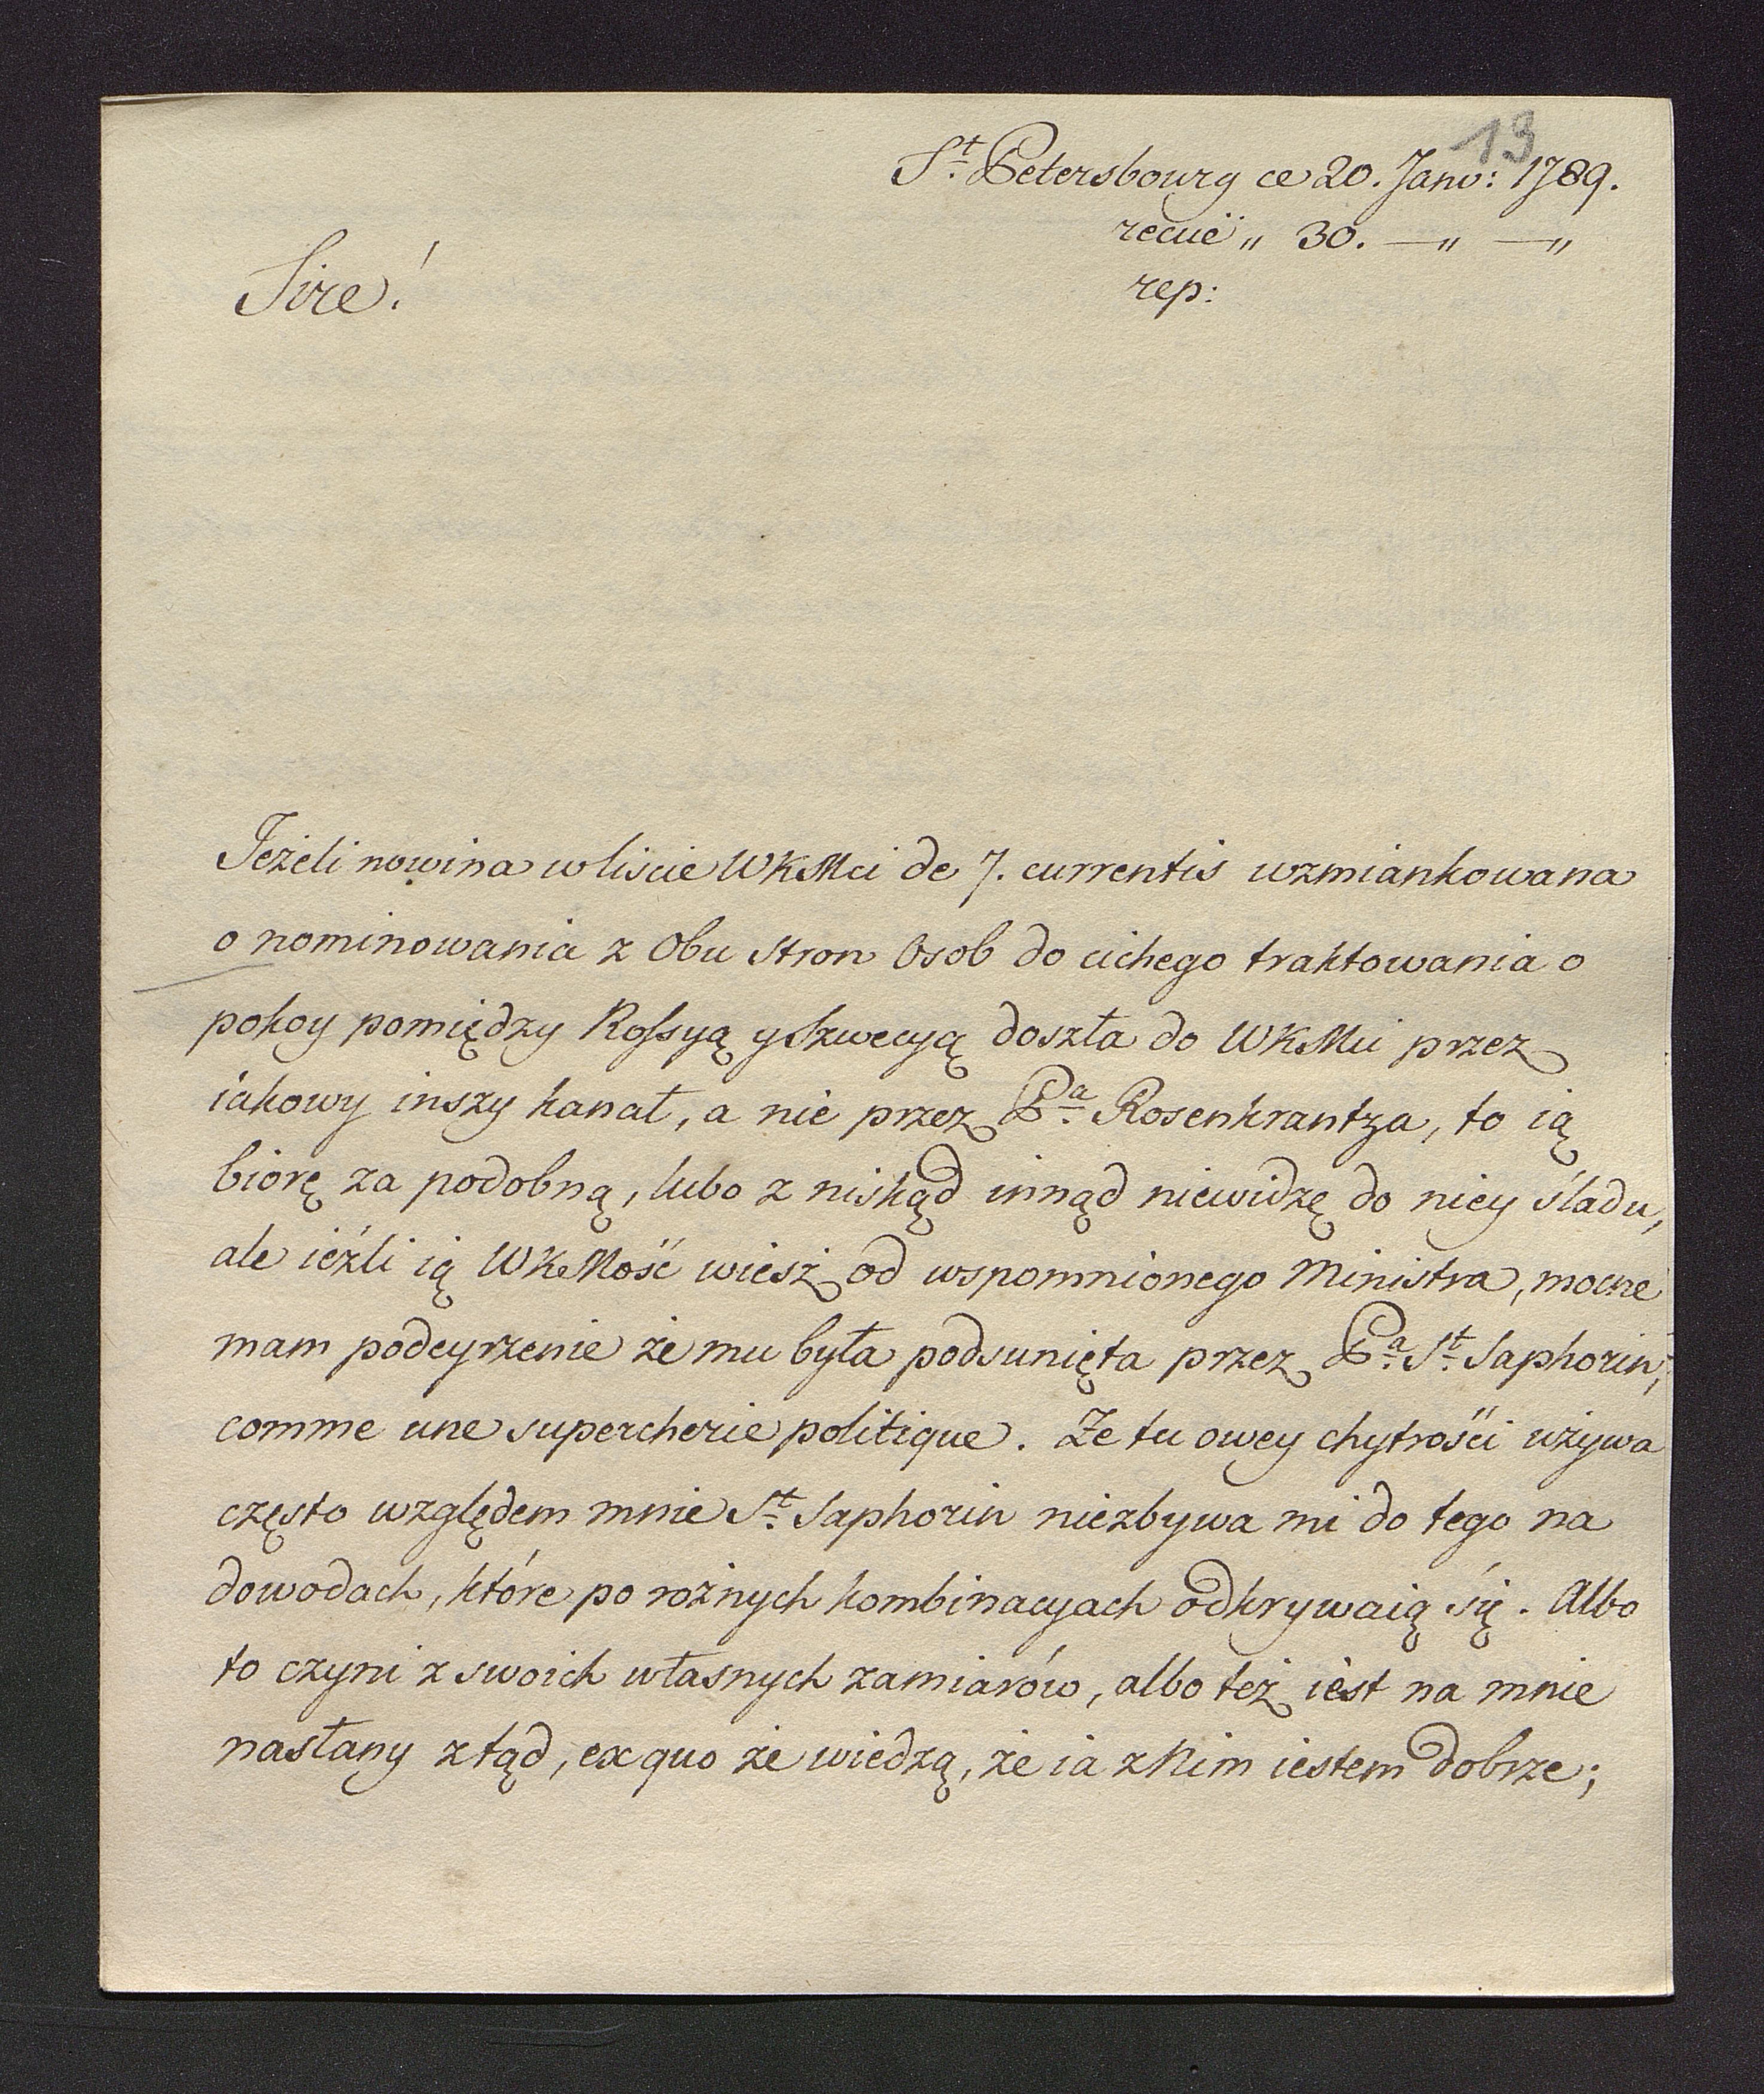 13
St. Petersbourg ce 20. Janv: 1789.
recüe „ 30. — „ — „
rep:
Sire!
Jeżeli nowina w liscie WKMci de 7. currentis wzmiankowana
o nominowania z Obu Stron Osob do cichego traktowania o
pokoy pomiędzy Rossyą y Szwecyą doszła do WKMci przez
iakowy inszy kanał, a nie przez Pa. Rosenkrantza, to ią
biorę za podobną, lubo z niskąd innąd niewidzę do niey śladu,
ale ieźli ią WKMość wiesz od wspomnionego Ministra, mocne
mam podeyrzenie że mu była podsunięta przez Pa. St. Saphorin,
comme une supercherie politique. Że tu owey chytrości używa
często względem mnie St. Saphorin niezbywa mi do tego na
dowodach, które po rożnych kombinacyach odkrywaią się. Albo
to czyni z swoich własnych zamiarów, albo też iest na mnie
nasłany ztąd, ex quo że wiedzą, że ia z Nim iestem dobrze;